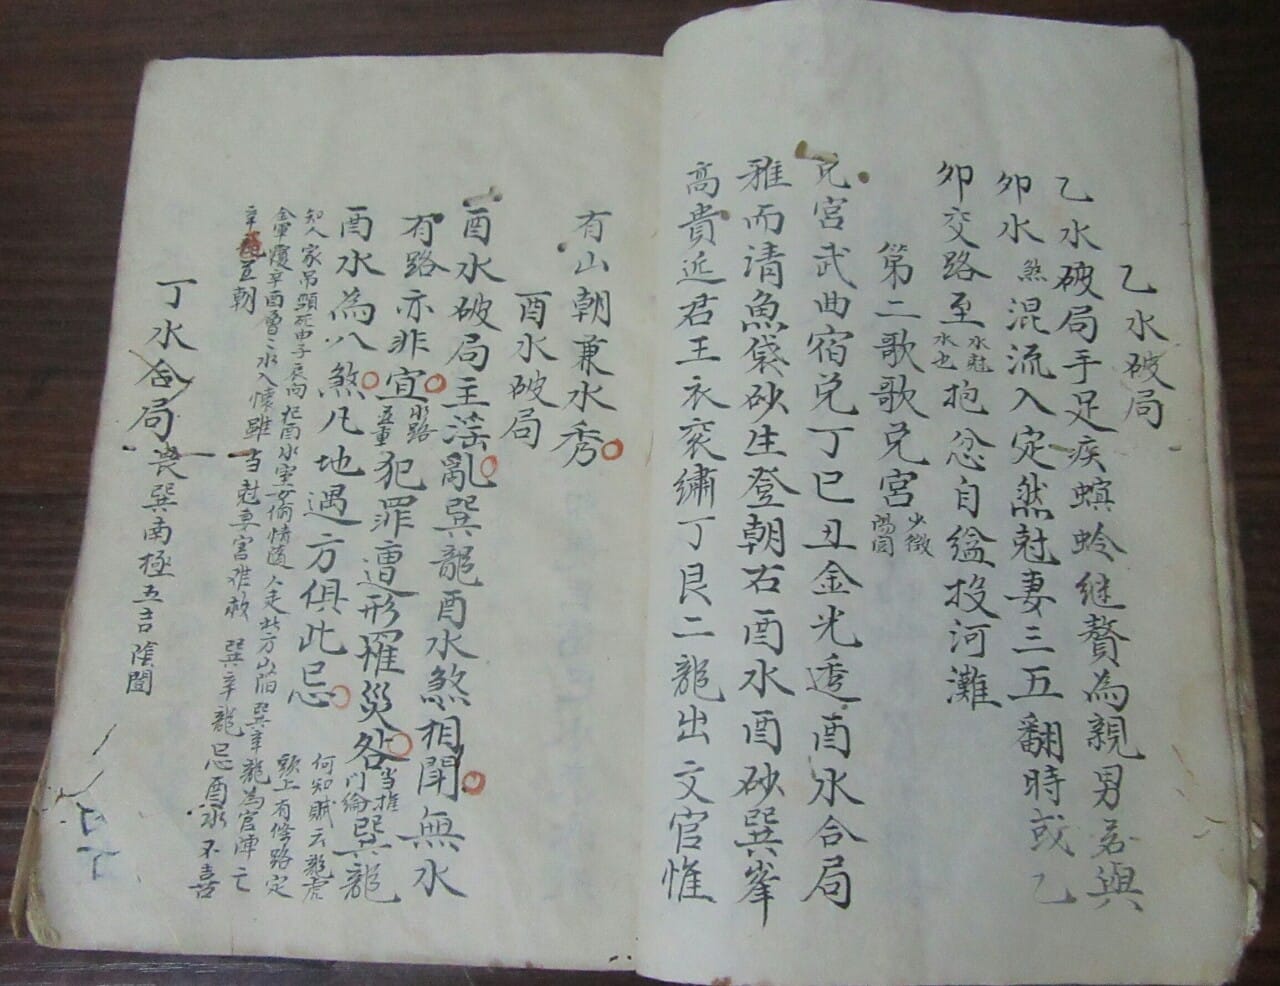 乙水破局
乙水破局手足疾螟蛉继贅為親男若與
卯水煞混流入定然尅妻三五翻時或乙
卯交路至水尅水也抱忿自縊投河灘
第二歌歌兌宮少微陽闾
兌宮武曲宿兌丁巳丑金光透酉水合局
雅而清魚袋砂生登朝右酉水酉砂巽峯
高貴近君王衣衮繡丁艮二龍出文官惟
有山朝兼水秀
酉水破局
酉水破局主淫亂巽龍酉水煞相閗無水
有路亦非宜水路並重犯罪遭形罹災咎当推門綸巽龍
酉水為八煞凡地遇方俱此忌何知賦云龍虎
知人家吊頸死申子辰向犯酉水室女偷情随人走此方山陷頭上有條路定
金軍廋辛酉曹水入懷雖当尅妻富难救巽辛龍為官陣亡
辛龍並朝巽辛龍忌酉水不喜
丁水合局喪巽南極五吉陰闾